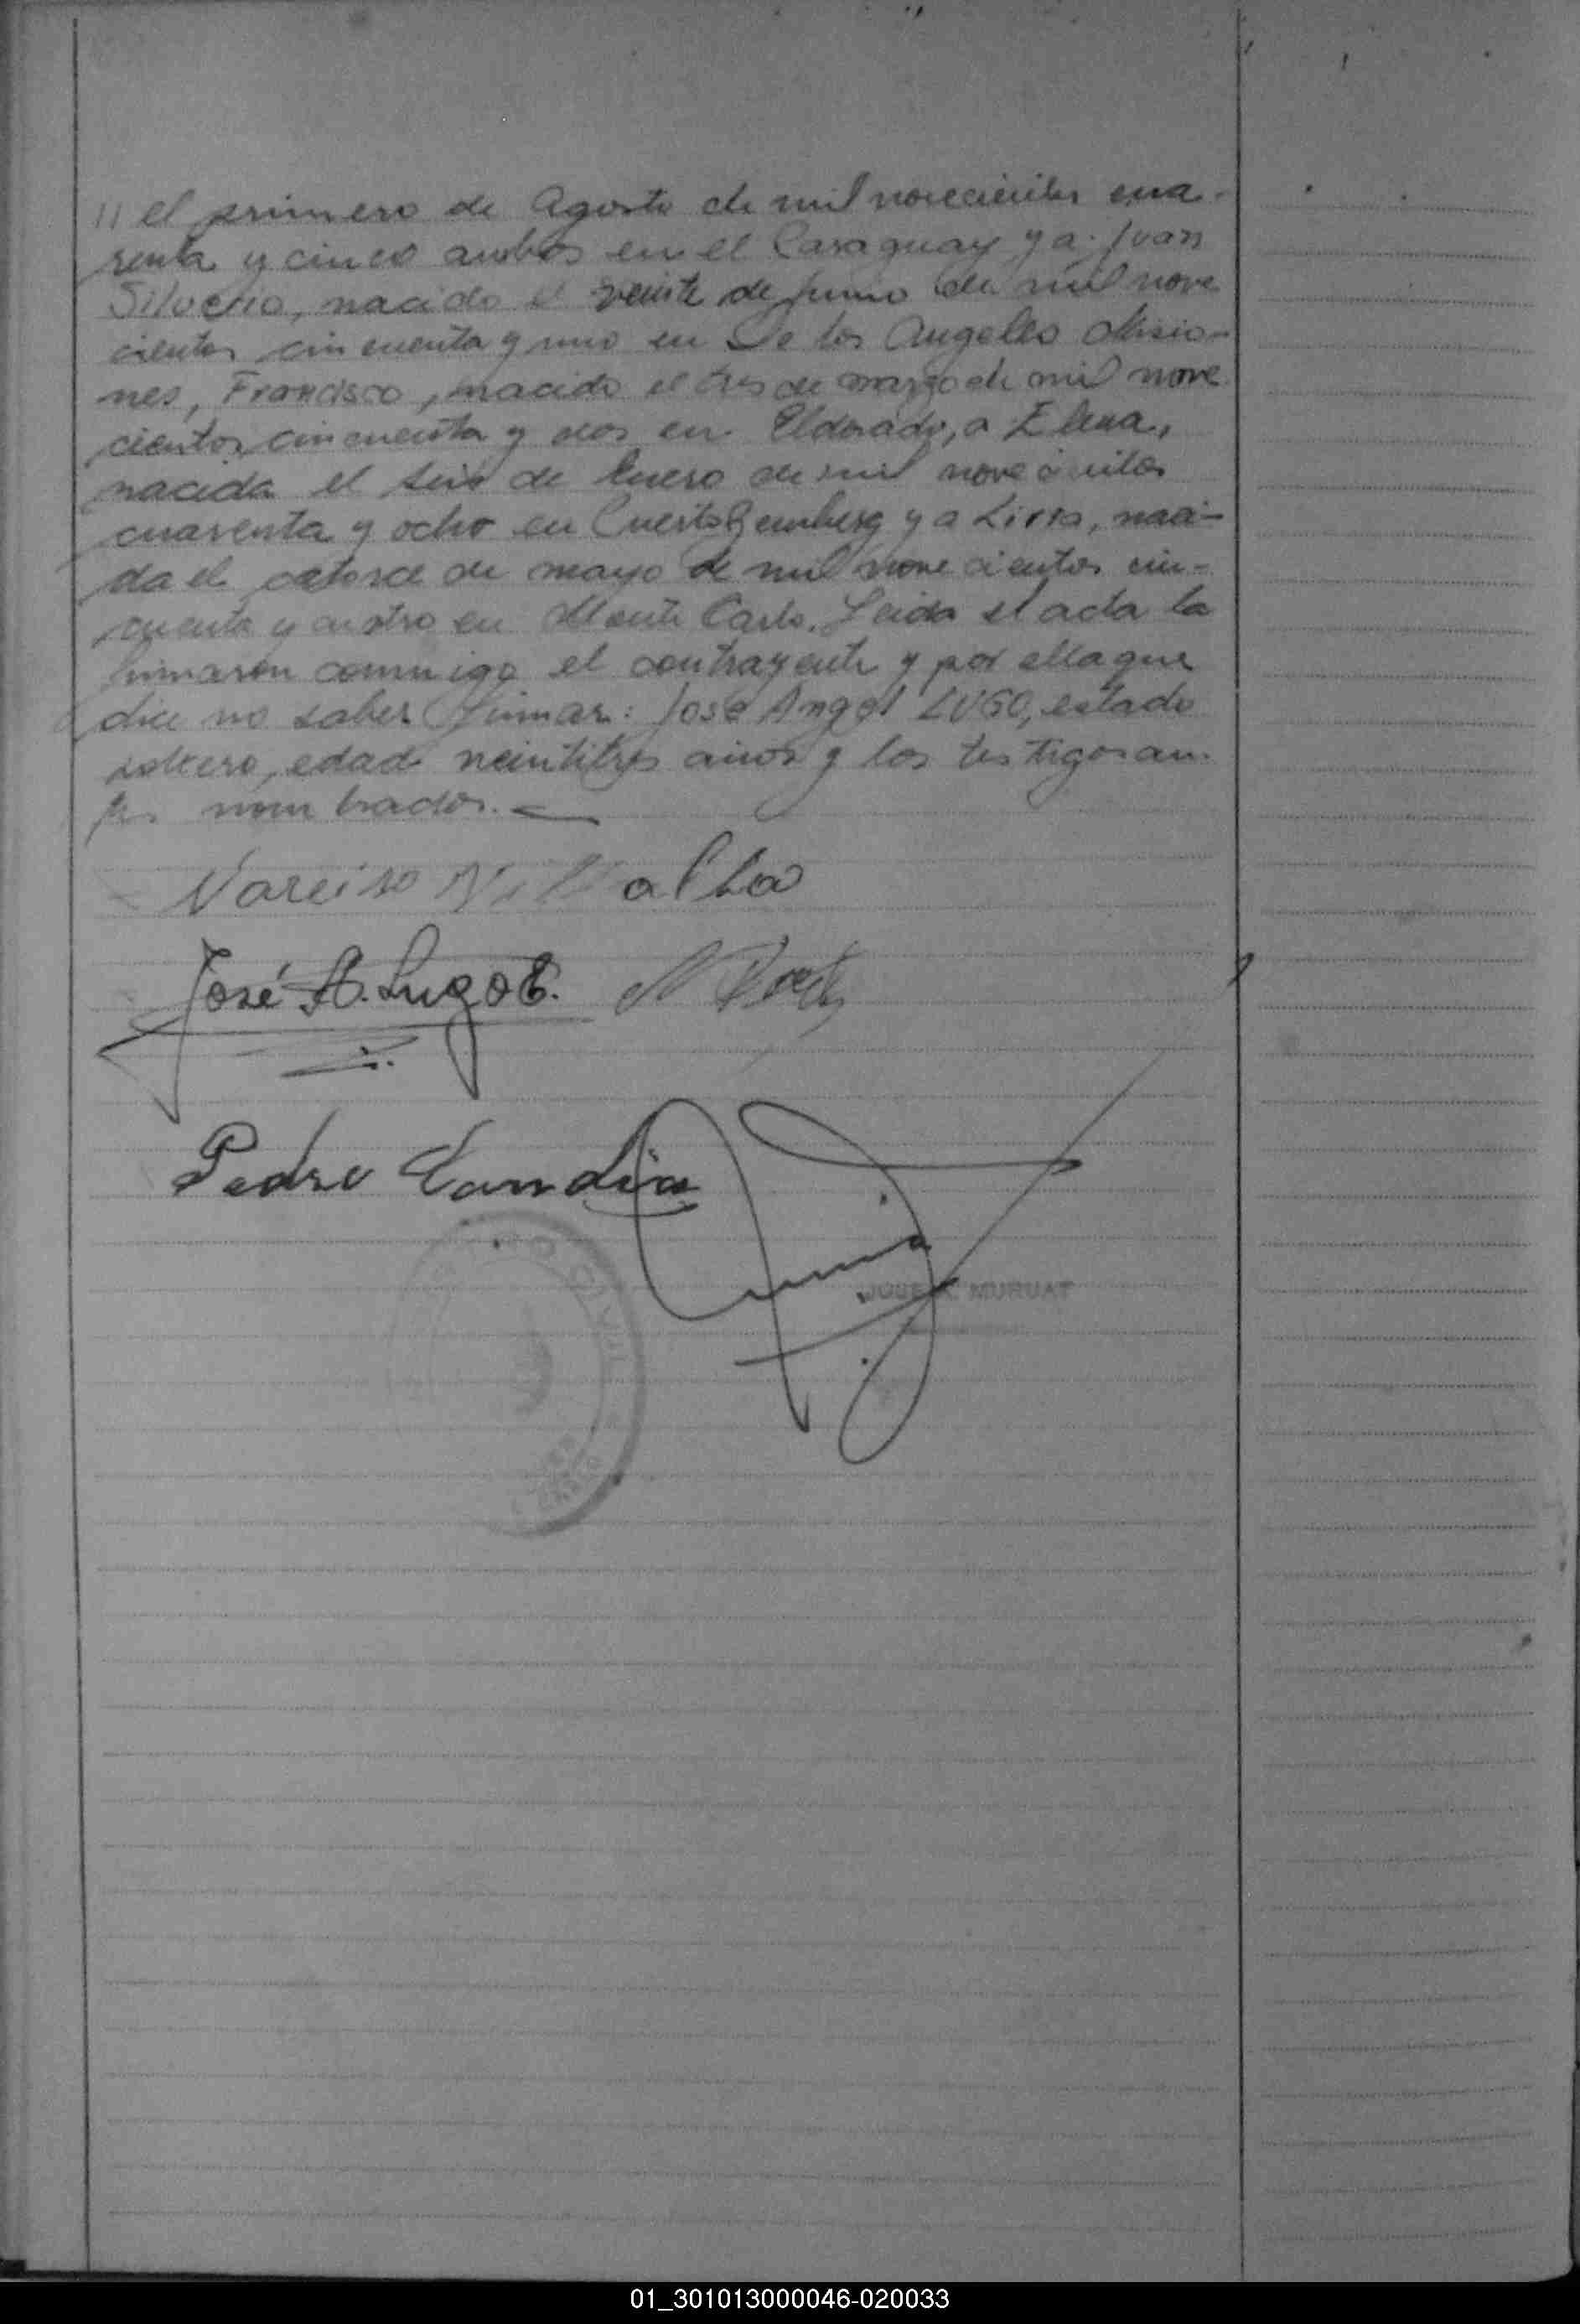 11 el primero de Agosto de mil novecientos cua-
renta y cinco ambos en el Paraguay y a Juan
Silverio, nacido el veinte de Junio de mil nove
cientos cincuenta y uno en De los Angeles Misio-
nes, Francisco, nacido el tres de marzo de mil nove
cientos cincuenta y dos en Eldorado, a Elena,
nacida el seis de Enero de mil novecientos
cuarenta y ocho en Puerto y a Lirra, naci-
da el catorce de mayo de mil novecientos cin-
cuenta y cuatro en Monte Carlo. Leida el acta la
firmaron conmigo el contrayente y por ella que
dice no saber firmar: José Angel LUGO, estado
soltero, edad veintitres años y los testigos an-
tes nombrados.
Narciso Villalba
José A. Lugo E.
Pedro Candia
REGISTRO CIVIL
JOSE A. MURUAT
01_301013000046-020033